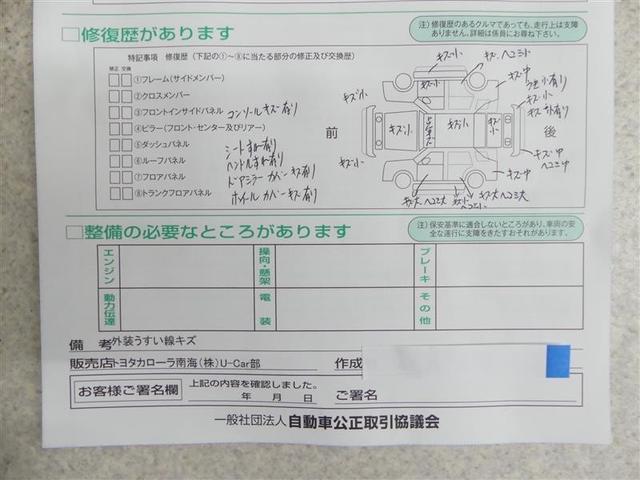 □修復歴があります
注）修復歴のあるクルマであっても、走行上は支障
ありません。詳細は係員にお尋ね下さい。
特記事項 修復歴（下記の①～⑧に当たる部分の修正及び交換歴）
修正 交換
①フレーム（サイドメンバー）
②クロスメンバー
③フロントインサイドパネル
④ピラー（フロント・センター及びリアー）
⑤ダッシュパネル
⑥ルーフパネル
⑦フロアパネル
⑧トランクフロアパネル
コンソールキズ有り
シートすれ有り
ハンドルすれ有り
ドアミラーカバーキズ有り
ホイールカバーキズ有り
前
後
キズ小
キズ、ヘコミ小
キズ中
キズ小
キズ小
キズ小
キズ小
キズ小
キズ小
キズ小
キズ中
ヘコミ中
キズ中
キズ大ヘコミ大
キズ大ヘコミ大
□整備の必要なところがあります
注）保安基準に適合しないところがあり、車両の安
全な運行に支障をきたすおそれがあります。
エンジン
操向・懸架
ブレーキ
動力伝達
電装
その他
備考 外装うすい線キズ
販売店 トヨタカローラ南海（株）U-Car部
作成
お客様ご署名欄
上記の内容を確認しました。
年 月 日
ご署名
一般社団法人 自動車公正取引協議会